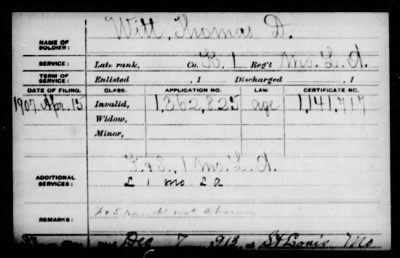 NAME OF SOLDIER: Witt, Thomas D.
SERVICE: Late rank, Co. K, 1 Reg't Mo. L. A.
TERM OF SERVICE: Enlisted , 1 Discharged , 1
DATE OF FILING. CLASS. APPLICATION NO. LAW. CERTIFICATE NO.
1907 Apr. 15 Invalid, 1,362,825 age 1,141,717
Widow,
Minor,
ADDITIONAL SERVICES: F&S. 1 Mo. L. A.
L 1 Mo L a
REMARKS: F & S
Dec 7, 1912 St Louis Mo